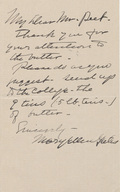 My dear Mr. Peet.
Thank you for
your attention to
the butter.
Please do as you
suggest - send up
to the college the
8 tins (5 lb. tins -)
of butter.
Sincerely -
Mary Ellen